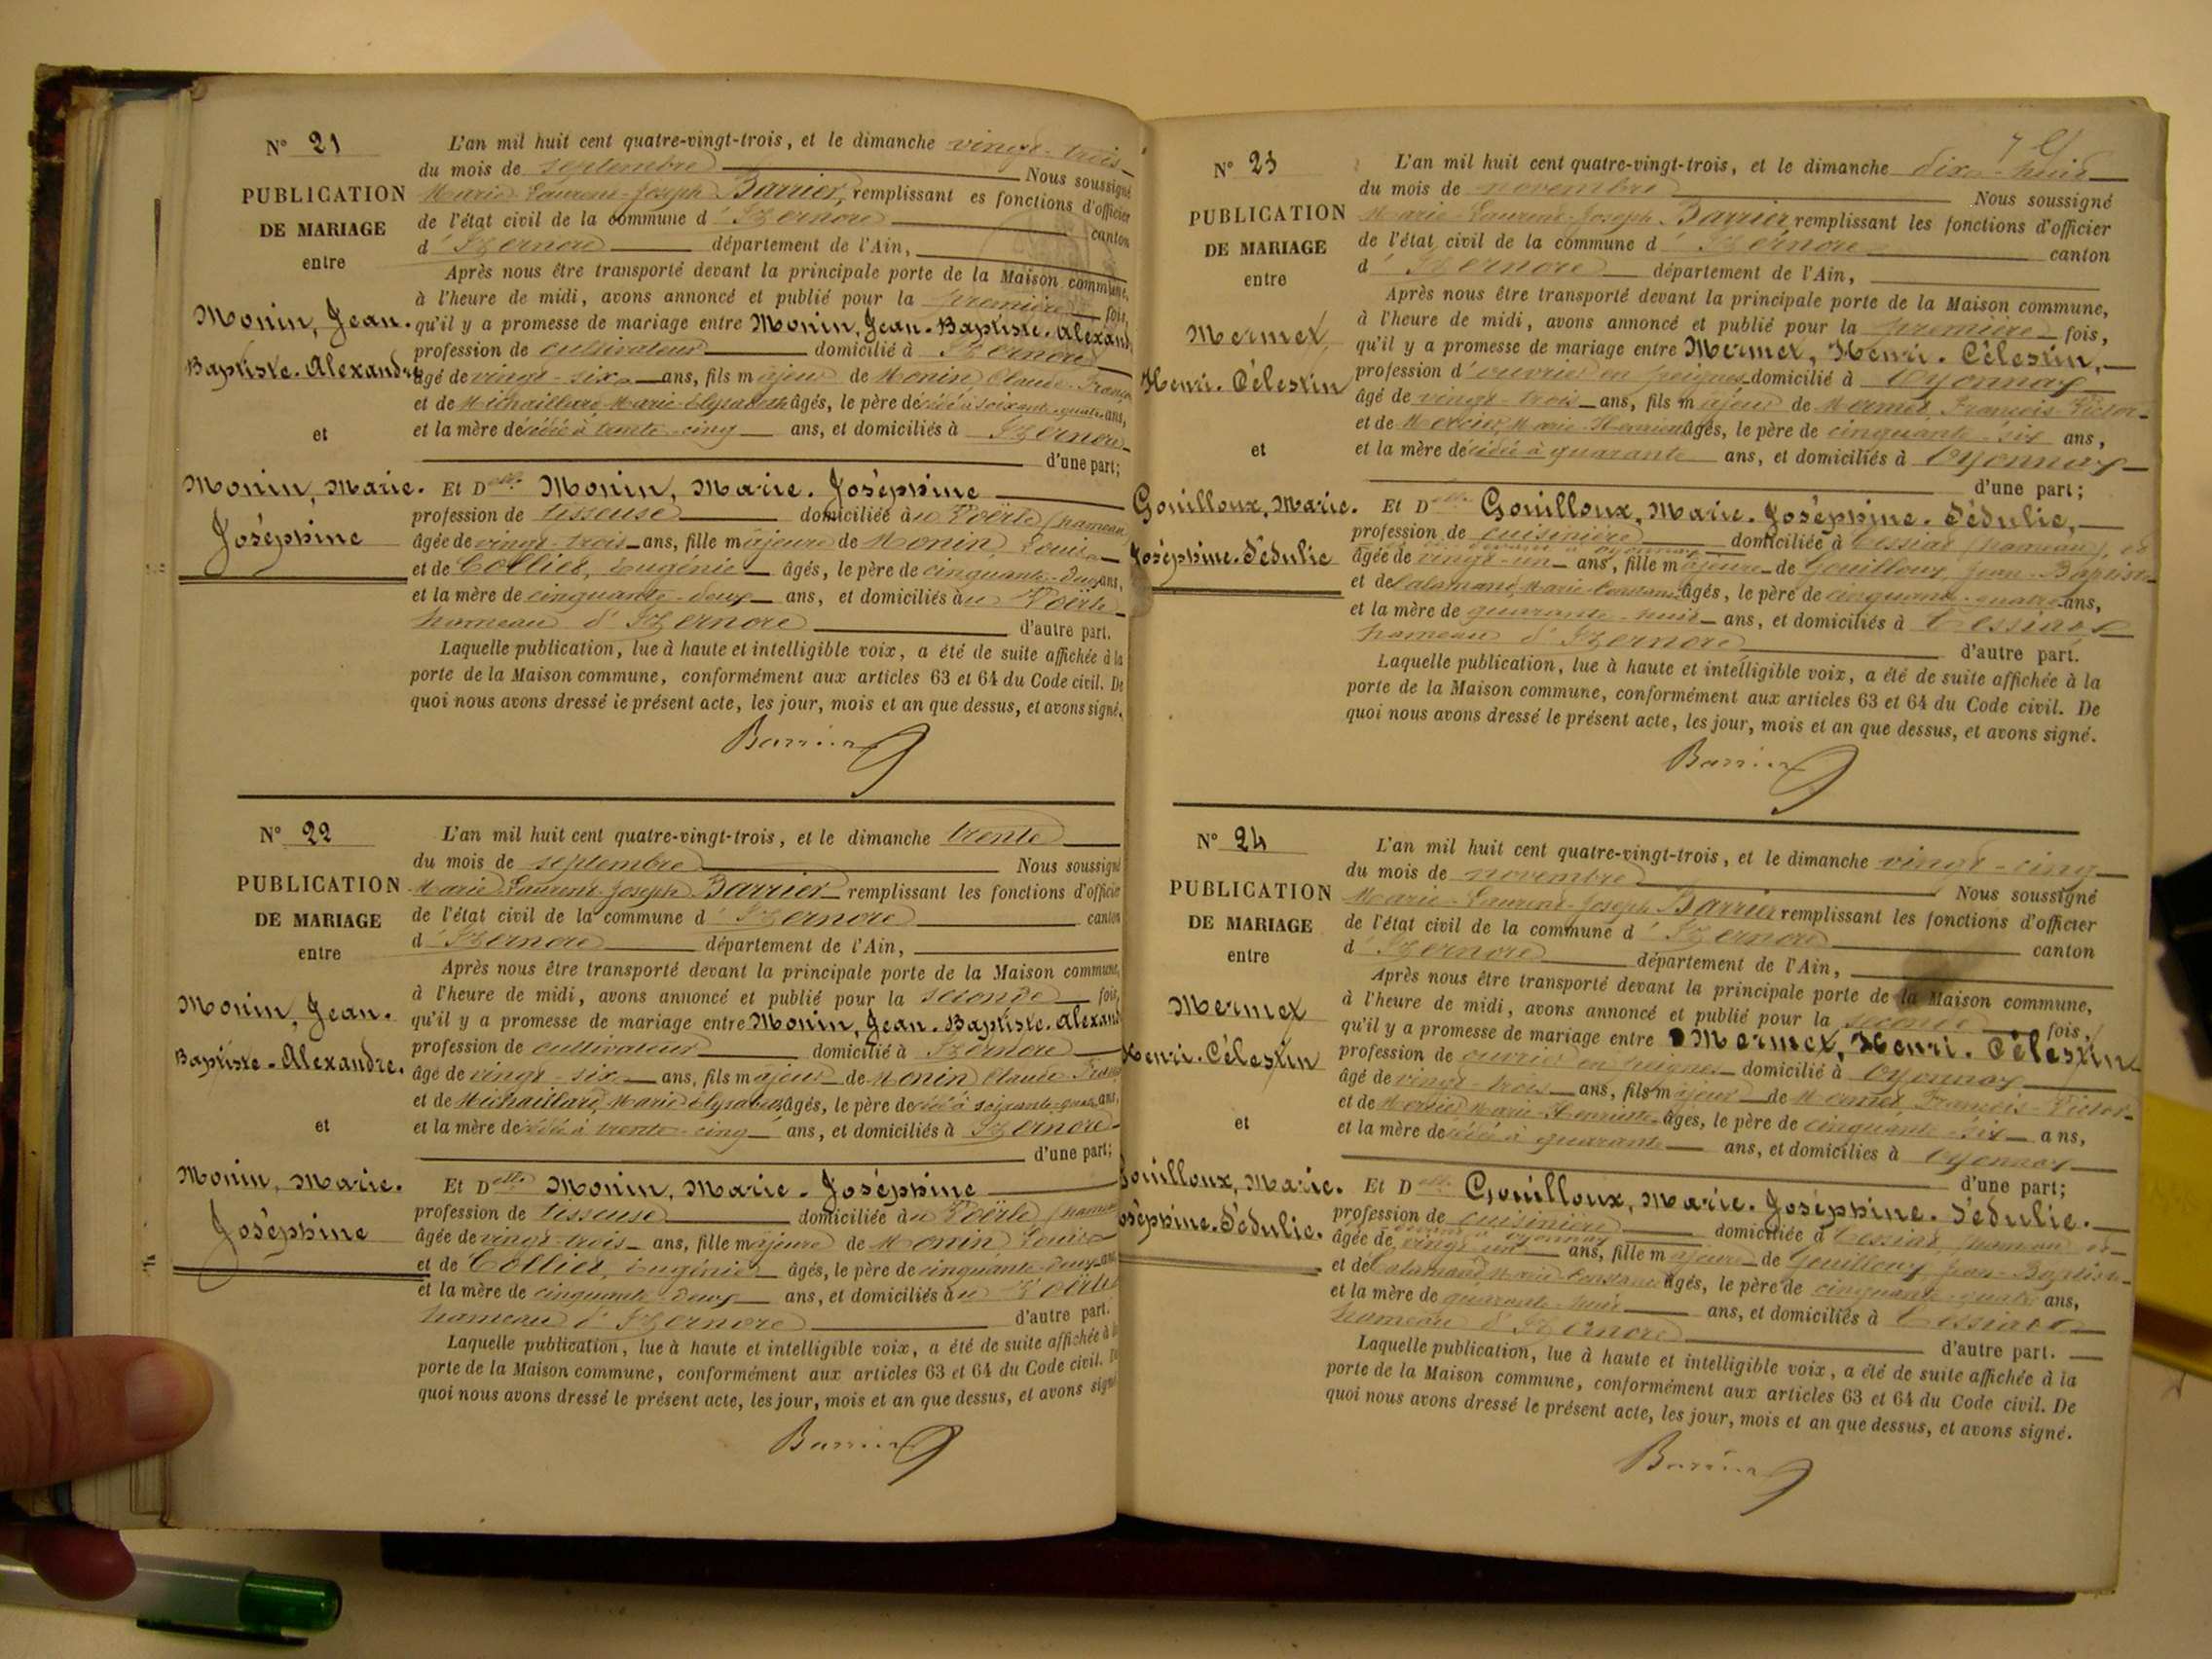 N° 21
PUBLICATION
DE MARIAGE
entre
Monin, Jean.
Baptiste. Alexandre
et
Monin, Marie.
Joséphine
L'an mil huit cent quatre-vingt-trois, et le dimanche vingt-trois
du mois de septembre Nous soussigné
Marie Laurent-Joseph Barrier, remplissant es fonctions d'officier
de l'état civil de la commune d'Izernore canton
d'Izernore département de l'Ain,
Après nous être transporté devant la principale porte de la Maison commune,
à l'heure de midi, avons annoncé et publié pour la première fois,
qu'il y a promesse de mariage entre Monin, Jean-Baptiste. Alexand
profession de cultivateur domicilié à Izernore
âgé de vingt-six ans, fils majeur de Monin Claude-Franç
et de Michaillard Marie-Elysabeth âgés, le père décédé à soixante-quatre ans,
et la mère décédée à trente-cinq ans, et domiciliés à Izernore
d'une part;
Et Delle Monin, Marie. Joséphine
profession de tisseuse domiciliée au Voërle (hameau
âgée de vingt-trois ans, fille majeure de Monin Louis
et de Collier, Eugénie âgés, le père de cinquante-deux ans,
et la mère de cinquante-deux ans, et domiciliés au Voërle
hameau d'Izernore d'autre part.
Laquelle publication, lue à haute et intelligible voix, a été de suite affichée à la
porte de la Maison commune, conformément aux articles 63 et 64 du Code civil. De
quoi nous avons dressé le présent acte, les jour, mois et an que dessus, et avons signé.
Barrier
N° 22
PUBLICATION
DE MARIAGE
entre
Monin, Jean.
Baptiste-Alexandre.
et
Monin, Marie.
Joséphine
L'an mil huit cent quatre-vingt-trois, et le dimanche trente
du mois de septembre Nous soussigné
Marie Laurent-Joseph Barrier remplissant les fonctions d'officier
de l'état civil de la commune d'Izernore canton
d'Izernore département de l'Ain,
Après nous être transporté devant la principale porte de la Maison commune,
à l'heure de midi, avons annoncé et publié pour la seconde fois,
qu'il y a promesse de mariage entre Monin, Jean-Baptiste. Alexand
profession de cultivateur domicilié à Izernore
âgé de vingt-six ans, fils majeur de Monin Claude Franç
et de Michaillard, Marie Elysabeth âgés, le père décédé à soixante-quatre ans,
et la mère décédée à trente-cinq ans, et domiciliés à Izernore
d'une part;
Et Delle Monin, Marie. Joséphine
profession de tisseuse domiciliée au Voërle (hameau
âgée de vingt-trois ans, fille majeure de Monin Louis
et de Collier, Eugénie âgés, le père de cinquante-deux ans
et la mère de cinquante deux ans, et domiciliés au Voërle
hameau d'Izernore d'autre part.
Laquelle publication, lue à haute et intelligible voix, a été de suite affichée à la
porte de la Maison commune, conformément aux articles 63 et 64 du Code civil. De
quoi nous avons dressé le présent acte, les jour, mois et an que dessus, et avons signé
Barrier
N° 23
PUBLICATION
DE MARIAGE
entre
Mermet
Henri. Célestin
et
Gouilloux, Marie.
Joséphine. Sédulie
L'an mil huit cent quatre-vingt-trois, et le dimanche dix-huit
du mois de novembre Nous soussigné
Marie-Laurent-Joseph Barrier remplissant les fonctions d'officier
de l'état civil de la commune d'Izernore canton
d'Izernore département de l'Ain,
Après nous être transporté devant la principale porte de la Maison commune,
à l'heure de midi, avons annoncé et publié pour la première fois,
qu'il y a promesse de mariage entre Mermet, Henri. Célestin,
profession d'ouvrier en peignes domicilié à Oyonnax
âgé de vingt-trois ans, fils majeur de Mermet, François-Victor
et de Mercier, Marie-Henriette âgés, le père de cinquante-six ans,
et la mère décédée à quarante ans, et domiciliés à Oyonnax
d'une part;
Et Delle Gouilloux, Marie. Joséphine. Sédulie,
profession de cuisinière domiciliée à Cessiat (hameau),
âgée de vingt-un ans, fille majeure de Gouilloux Jean-Baptiste
et de Calamand, Marie-Constance âgés, le père de cinquante-quatre ans,
et la mère de quarante-huit ans, et domiciliés à Cessiat
hameau d'Izernore d'autre part.
Laquelle publication, lue à haute et intelligible voix, a été de suite affichée à la
porte de la Maison commune, conformément aux articles 63 et 64 du Code civil. De
quoi nous avons dressé le présent acte, les jour, mois et an que dessus, et avons signé.
Barrier
N° 24
PUBLICATION
DE MARIAGE
entre
Mermet
Henri. Célestin
et
Gouilloux, Marie.
Joséphine. Sédulie.
L'an mil huit cent quatre-vingt-trois, et le dimanche vingt-cinq
du mois de novembre Nous soussigné
Marie-Laurent-Joseph Barrier remplissant les fonctions d'officier
de l'état civil de la commune d'Izernore canton
d'Izernore département de l'Ain,
Après nous être transporté devant la principale porte de la Maison commune,
à l'heure de midi, avons annoncé et publié pour la seconde fois,
qu'il y a promesse de mariage entre Mermet, Henri. Célestin
profession de ouvrier en peignes domicilié à Oyonnax
âgé de vingt-trois ans, fils majeur de Mermet François-Victor
et de Mercier Marie-Henriette âgés, le père de cinquante-six ans,
et la mère décédée à quarante ans, et domiciliés à Oyonnax
d'une part;
Et Delle Gouilloux, Marie. Joséphine. Sédulie.
profession de cuisinière domiciliée à Cessiat, hameau
âgée de vingt un ans, fille majeure de Gouilloux Jean-Baptiste
et de Calamand Marie Constance âgés, le père de cinquante-quatre ans,
et la mère de quarante-huit ans, et domiciliés à Cessiat
hameau d'Izernore d'autre part.
Laquelle publication, lue à haute et intelligible voix, a été de suite affichée à la
porte de la Maison commune, conformément aux articles 63 et 64 du Code civil. De
quoi nous avons dressé le présent acte, les jour, mois et an que dessus, et avons signé.
Barrier